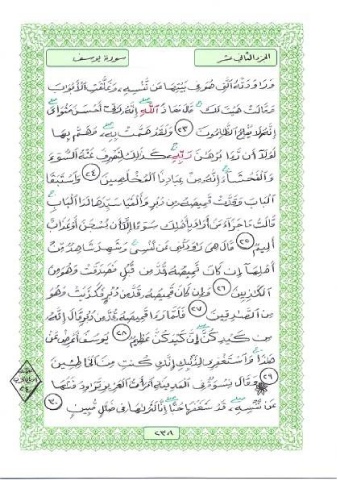 الجزء الثاني عشر
سورة يوسف
وَرَٰوَدَتْهُ ٱلَّتِى هُوَ فِى بَيْتِهَا عَن نَّفْسِهِۦ وَغَلَّقَتِ ٱلْأَبْوَٰبَ
وَقَالَتْ هَيْتَ لَكَ قَالَ مَعَاذَ ٱللَّهِ إِنَّهُۥ رَبِّىٓ أَحْسَنَ مَثْوَاىَ
إِنَّهُۥ لَا يُفْلِحُ ٱلظَّٰلِمُونَ ٢٣ وَلَقَدْ هَمَّتْ بِهِۦ وَهَمَّ بِهَا
لَوْلَآ أَن رَّءَا بُرْهَٰنَ رَبِّهِۦ كَذَٰلِكَ لِنَصْرِفَ عَنْهُ ٱلسُّوٓءَ
وَٱلْفَحْشَآءَ إِنَّهُۥ مِنْ عِبَادِنَا ٱلْمُخْلَصِينَ ٢٤ وَٱسْتَبَقَا
ٱلْبَابَ وَقَدَّتْ قَمِيصَهُۥ مِن دُبُرٍ وَأَلْفَيَا سَيِّدَهَا لَدَا ٱلْبَابِ
قَالَتْ مَا جَزَآءُ مَنْ أَرَادَ بِأَهْلِكَ سُوٓءًا إِلَّآ أَن يُسْجَنَ أَوْ عَذَابٌ
أَلِيمٌ ٢٥ قَالَ هِىَ رَٰوَدَتْنِى عَن نَّفْسِى وَشَهِدَ شَاهِدٌ مِّنْ
أَهْلِهَآ إِن كَانَ قَمِيصُهُۥ قُدَّ مِن قُبُلٍ فَصَدَقَتْ وَهُوَ مِنَ
ٱلْكَٰذِبِينَ ٢٦ وَإِن كَانَ قَمِيصُهُۥ قُدَّ مِن دُبُرٍ فَكَذَبَتْ وَهُوَ
مِنَ ٱلصَّٰدِقِينَ ٢٧ فَلَمَّا رَءَا قَمِيصَهُۥ قُدَّ مِن دُبُرٍ قَالَ إِنَّهُۥ
مِن كَيْدِكُنَّ إِنَّ كَيْدَكُنَّ عَظِيمٌ ٢٨ يُوسُفُ أَعْرِضْ عَنْ
هَٰذَا وَٱسْتَغْفِرِى لِذَنۢبِكِ إِنَّكِ كُنتِ مِنَ ٱلْخَاطِـِٔينَ
٢٩ وَقَالَ نِسْوَةٌ فِى ٱلْمَدِينَةِ ٱمْرَأَتُ ٱلْعَزِيزِ تُرَٰوِدُ فَتَىٰهَا
عَن نَّفْسِهِۦ قَدْ شَغَفَهَا حُبًّا إِنَّا لَنَرَىٰهَا فِى ضَلَٰلٍ مُّبِينٍ ٣٠
٢٣٨